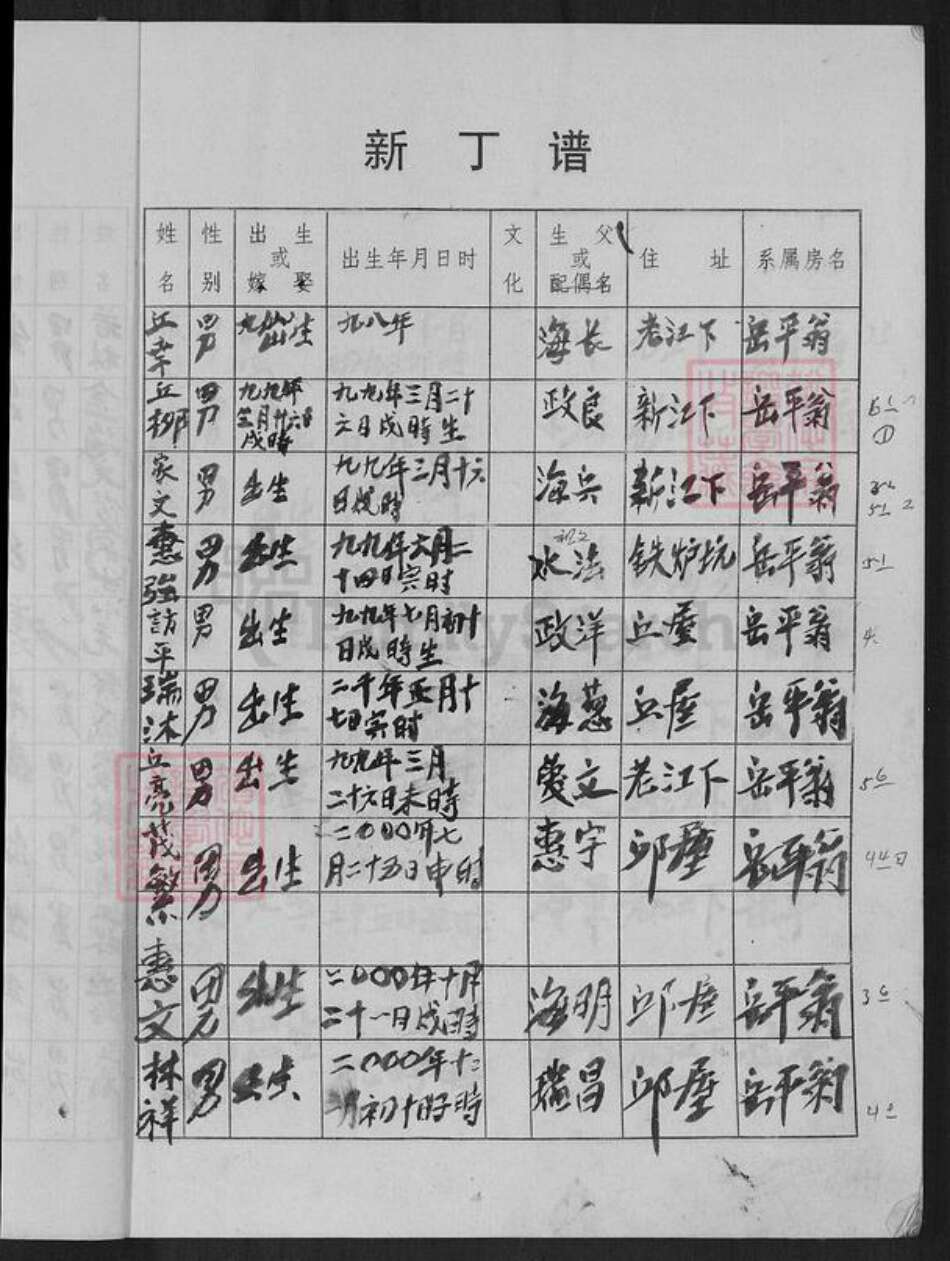 新丁谱
姓名 性别 出生或嫁娶 出生年月日时 文化 生父或配偶名 住址 系属房名
男 生 九八年 海长 老江下 岳平翁
丘柳 男 九九年三月廿六日戌時 九九年三月二十六日戌時生 政良 新江下 岳平翁
家文 男 出生 九九年三月十六日戌時 海兵 新江下 岳平翁
惠强 男 出生 九九年六月二十四日寅时 祖父 水法 铁炉坑 岳平翁
訪平 男 出生 九九年七月初十日戌時生 政洋 丘屋 岳平翁
瑞沐 男 出生 二千年正月十七日寅时 海葱 丘屋 岳平翁
丘亮 男 出生 九九年三月二十六日未時 文 老江下 岳平翁
茂繁 男 出生 二000年七月二十五日申时 惠宇 邱屋 岳平翁
惠文 男 出生 二000年十月二十一日戌時 海明 邱屋 岳平翁
林祥 男 出生 二000年十二月初十 時 瑞昌 邱屋 岳平翁